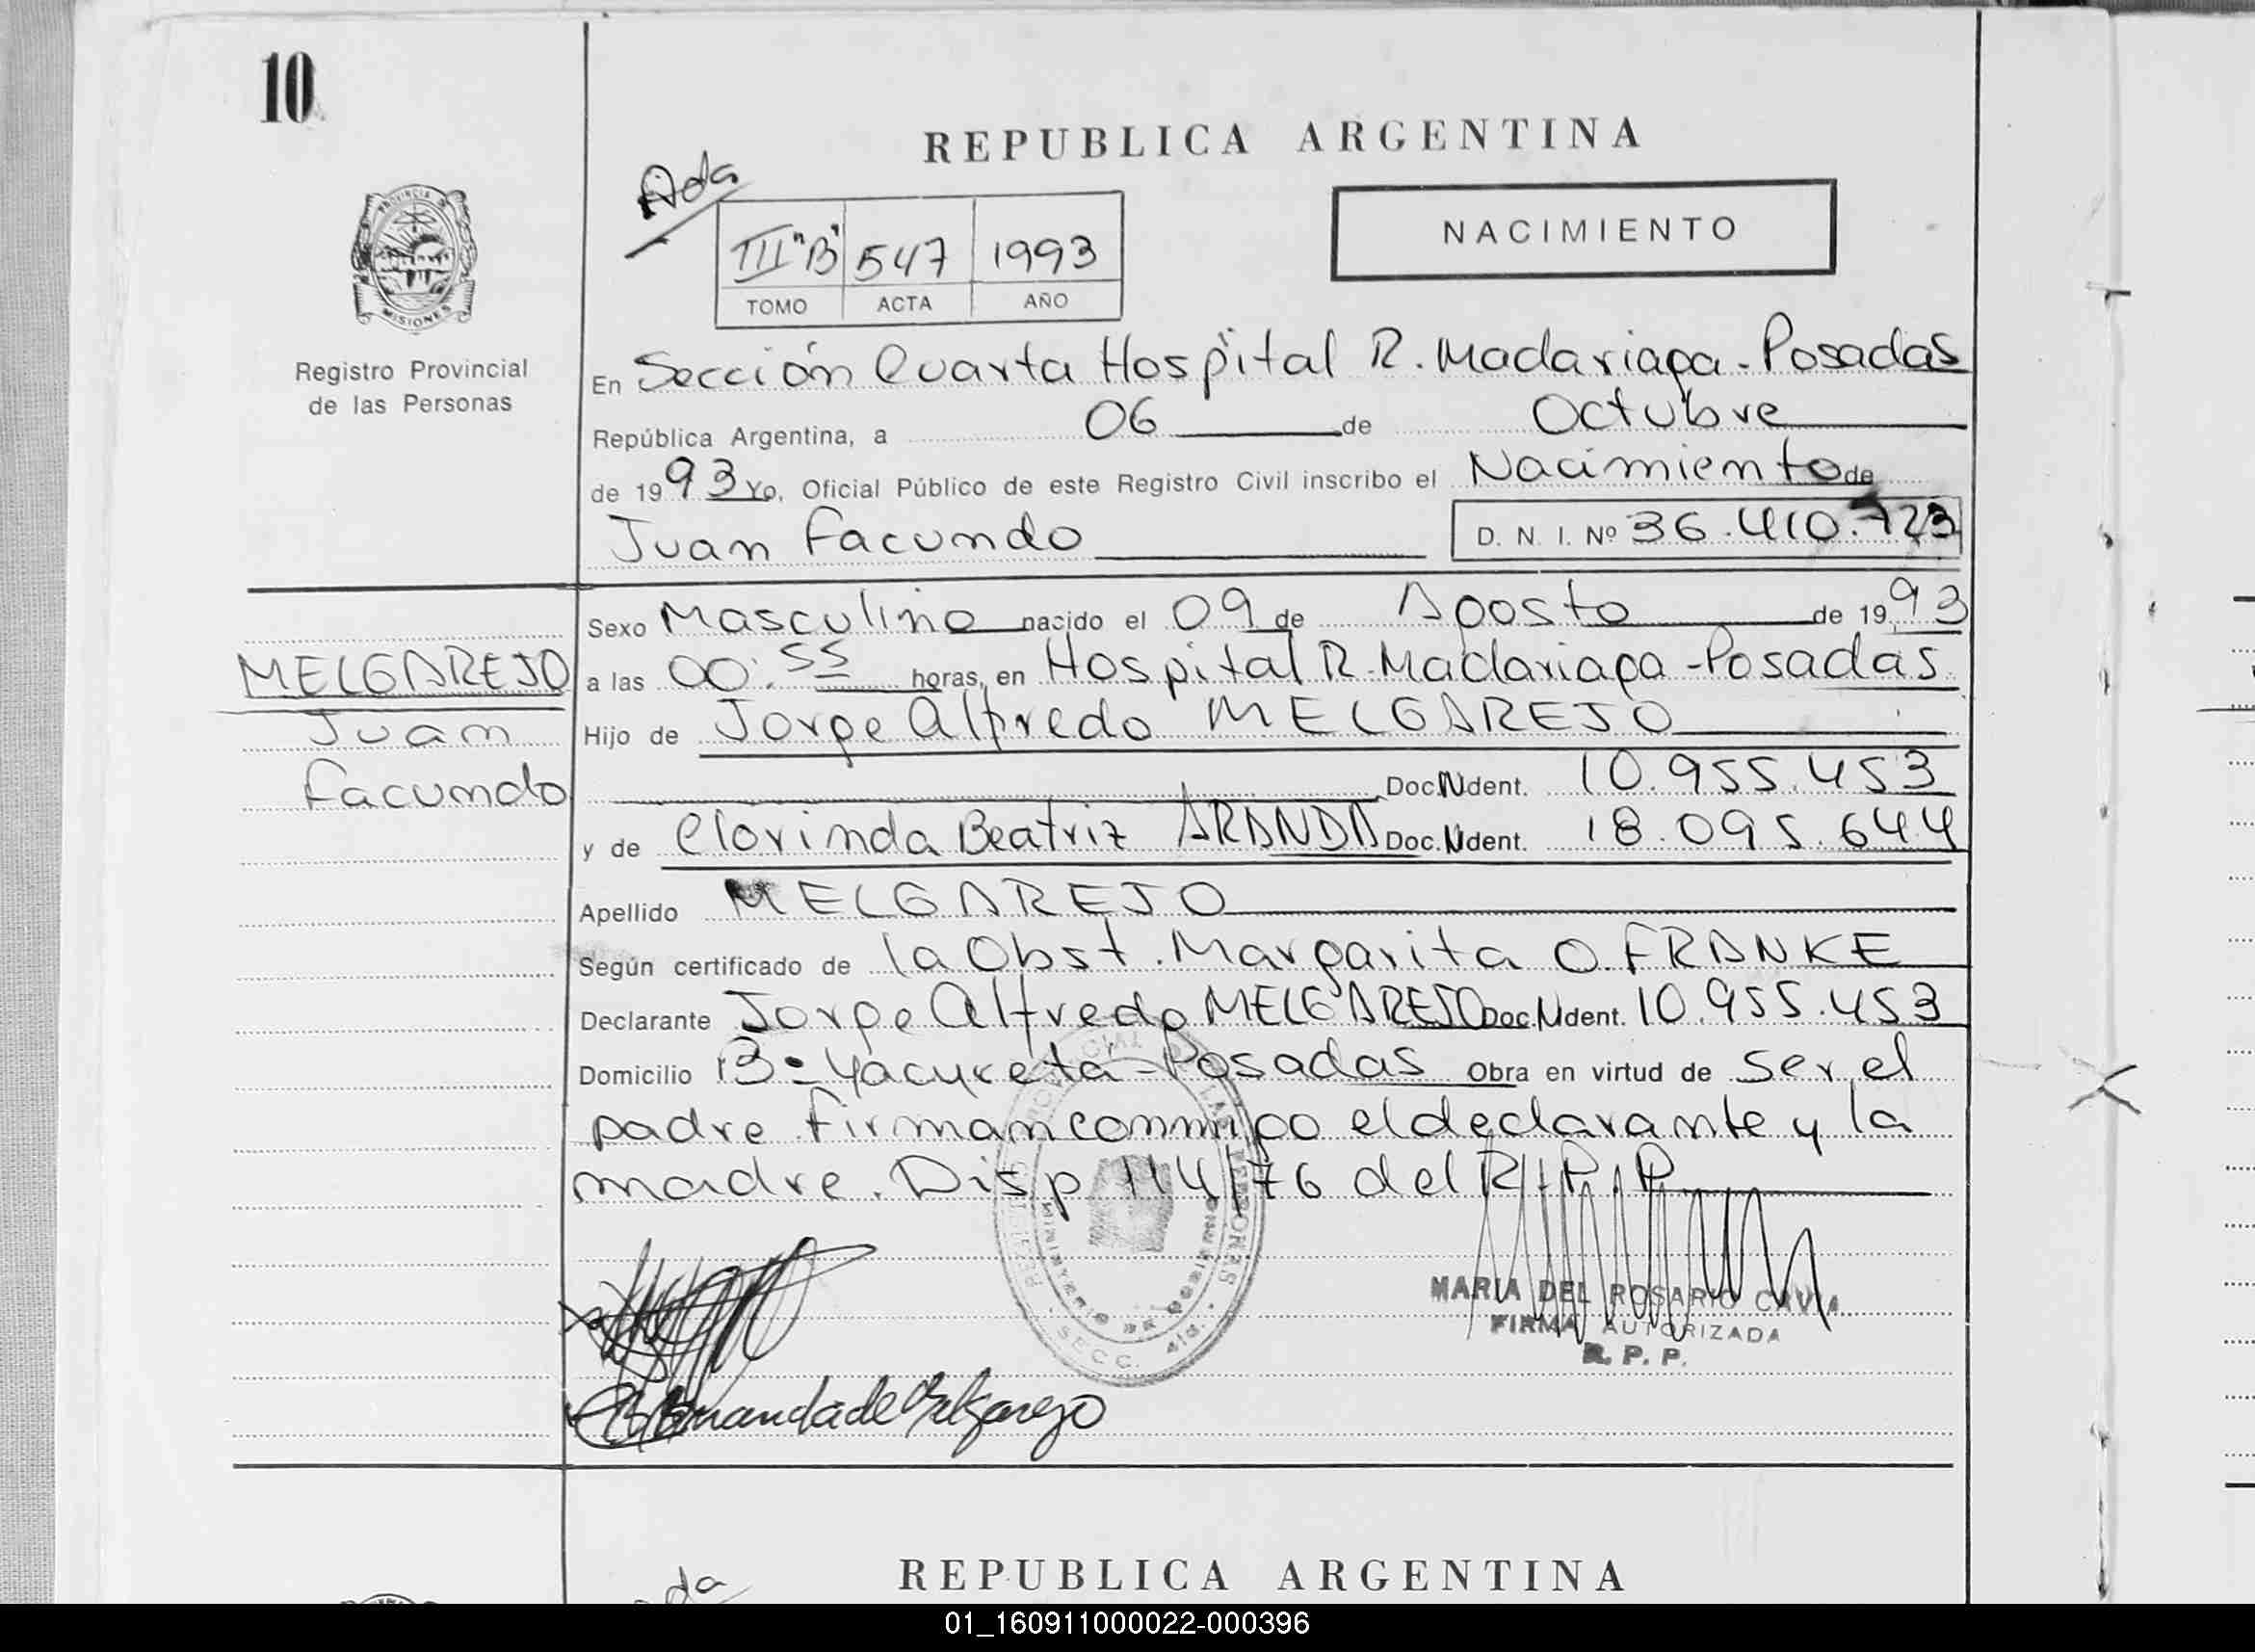 10
REPUBLICA ARGENTINA
Ada
III "B" 547 1993
TOMO ACTA AÑO
NACIMIENTO
PROVINCIA D
MISIONES
Registro Provincial
de las Personas
En Sección Cuarta Hospital R. Madariaga - Posadas
República Argentina, a 06 de Octubre
de 1993 Yo, Oficial Público de este Registro Civil inscribo el Nacimiento de
Juan Facundo D. N. I. Nº 36.410.723
Sexo Masculino nacido el 09 de Agosto de 1993
MELGAREJO
Juan
Facundo
a las 00:55 horas, en Hospital R. Madariaga - Posadas
Hijo de Jorge Alfredo MELGAREJO
Doc. N Ident. 10.955.453
y de Clorinda Beatriz ARANDA Doc. N Ident. 18.095.644
Apellido MELGAREJO
Según certificado de la Obst. Margarita O. FRANKE
Declarante Jorge Alfredo MELGAREJO Doc. N Ident. 10.955.453
Domicilio Bº Yacyreta - Posadas Obra en virtud de ser el
padre firman conmigo el declarante y la
madre. Disp 114/76 del R.P.P
SECC. 4ta.
MARIA DEL ROSARIO CAVIA
FIRMA AUTORIZADA
R. P. P.
de Melgarejo
REPUBLICA ARGENTINA
01_160911000022-000396